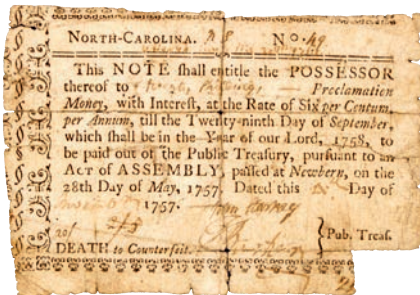 NORTH-CAROLINA. No. 49
This NOTE shall entitle the POSSESSOR
thereof to Proclamation
Money, with Interest, at the Rate of Six per Centum,
per Annum, till the Twenty-ninth Day of September,
which shall be in the Year of our Lord, 1758, to
be paid out of the Public Treasury, pursuant to an
ACT of ASSEMBLY, passed at Newbern, on the
28th Day of May, 1757. Dated this Day of
1757.
Pub. Treas.
DEATH to Counterfeit.